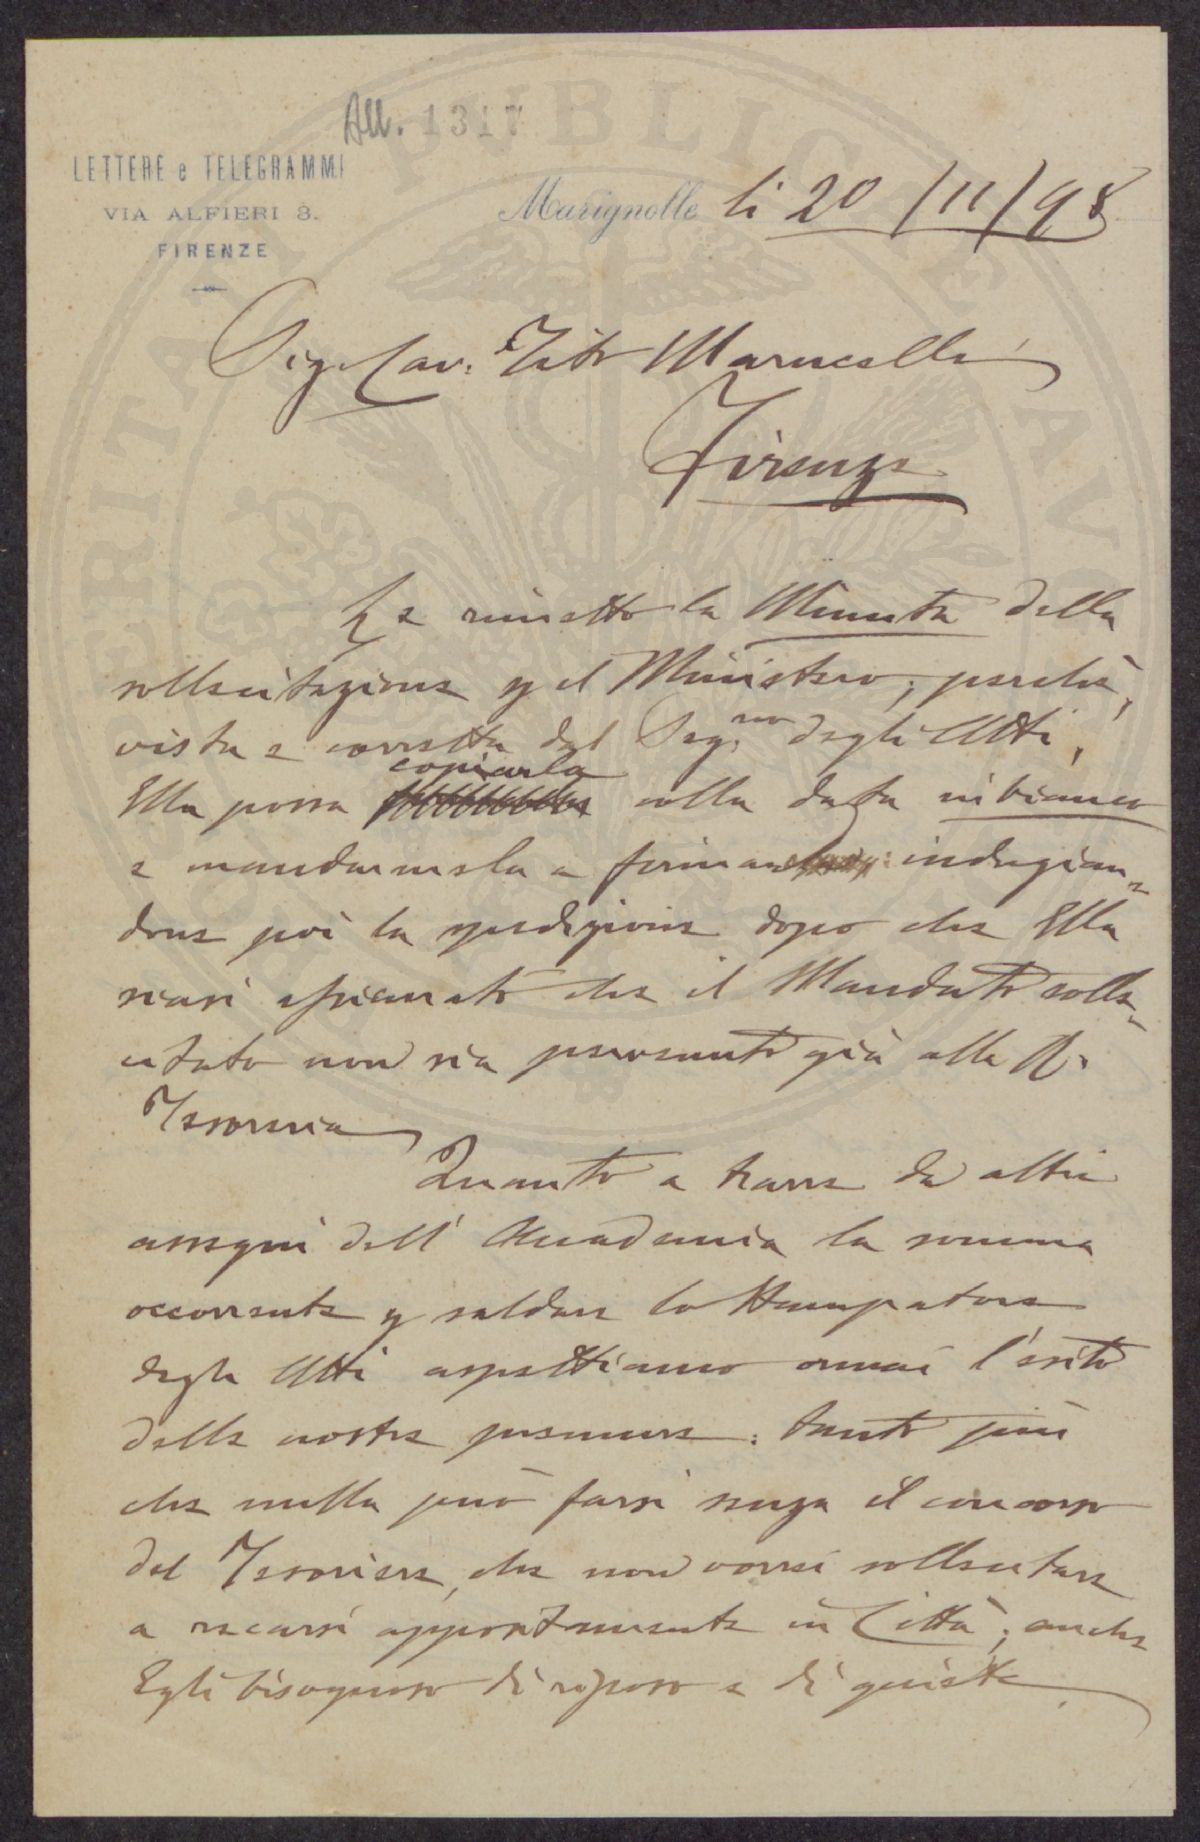 All. 1317
LETTERE e TELEGRAMMI
VIA ALFIERI 8.
FIRENZE
Marignolle li 20/11/98
Sig. Cav. Tito Marucelli
Firenze
Le rimetto la Minuta della
sollecitazione p el Ministero; perchè,
vista e corretta dal Seg.rio degli Atti,
copiarla
Ella possa colla data in bianco
e mandarmela a firmare: indugian=
done poi la spedizione dopo che Ella
siasi assicurato che il Mandato solle=
citato non sia pervenuto già alla R.
Tesoreria
Quanto a trarre da altri
assegni dell' Accademia la somma
occorrente p saldare lo Stampatore
degli Atti aspettiamo ormai l'esito
delle nostre premure: tanto più
che nulla può farsi senza il concorso
del Tesoriere, che non vorrei sollecitare
a recarsi appositamente in Città; anche
Egli bisognoso di riposo e di quiete
PUBLICAE